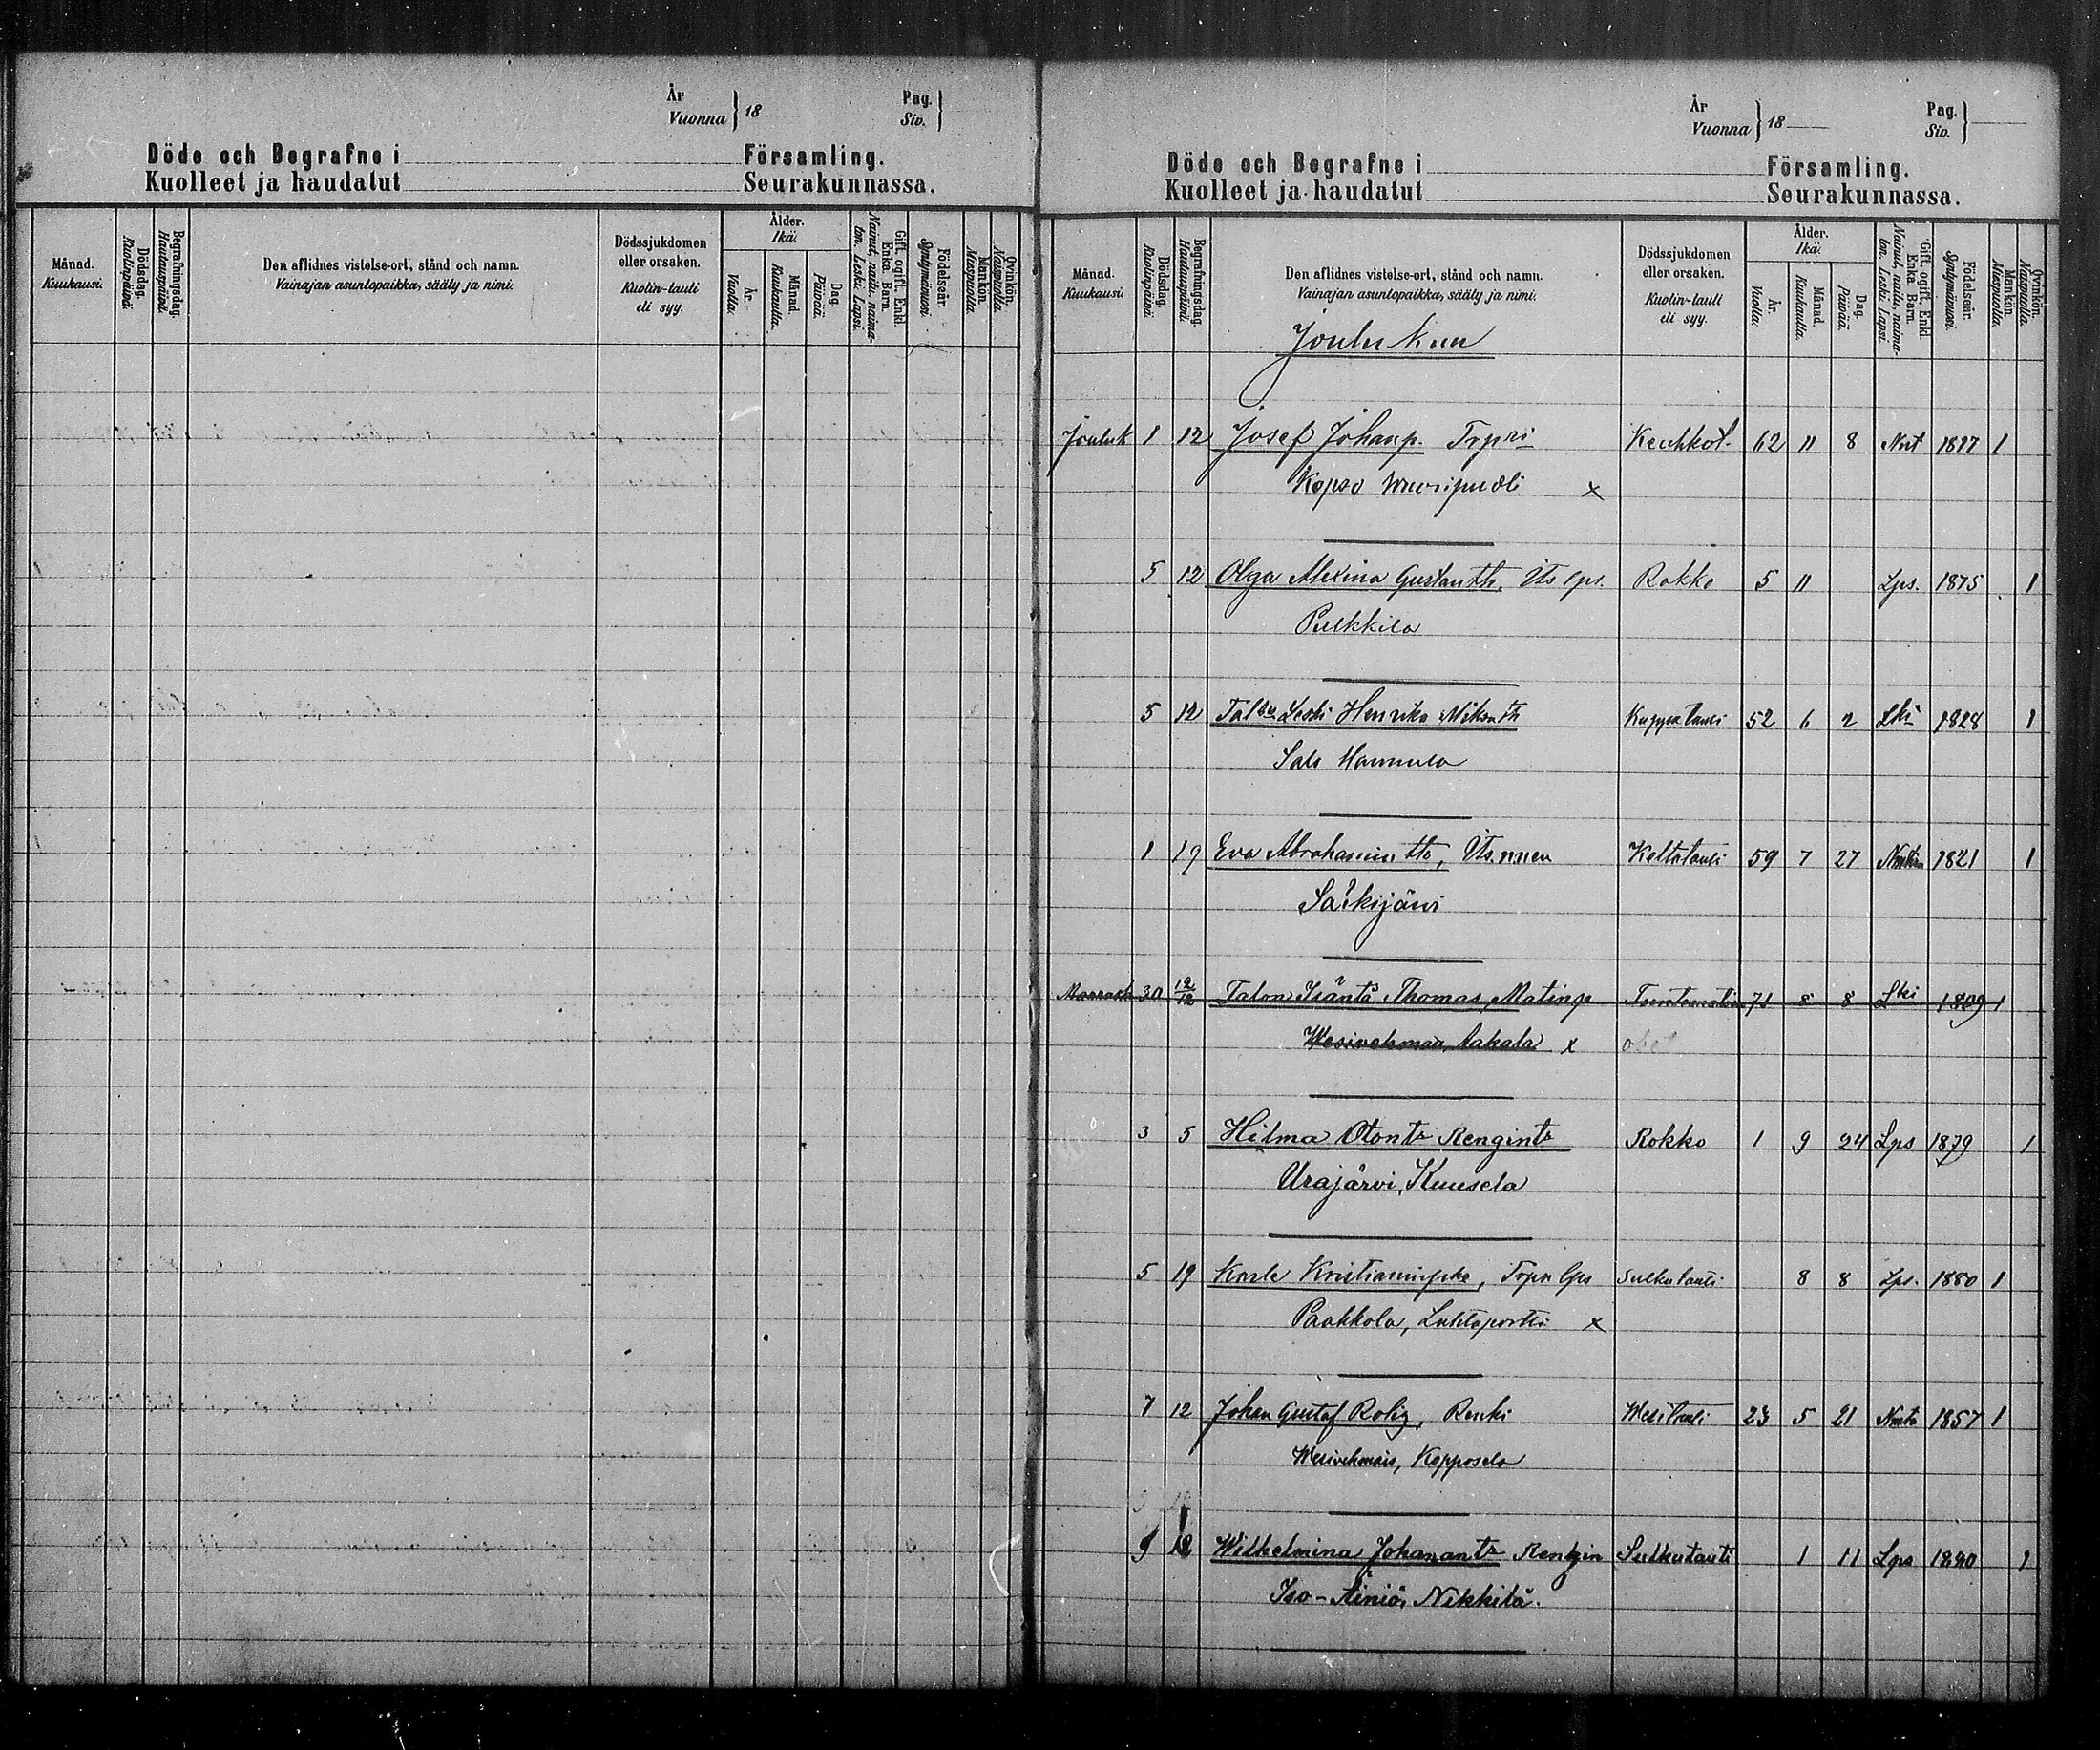 År
Vuonna } 18
Pag.
Siv. }
Döde och Begrafne i Församling.
Kuolleet ja haudatut Seurakunnassa.
Månad.
Kuukausi.
Dödsdag.
Kuolinpäivä.
Begrafningsdag.
Hautauspäivä.
Den aflidnes vistelse-ort, stånd och namn.
Vainajan asuntopaikka, sääty ja nimi.
Dödssjukdomen
eller orsaken.
Kuolin-tauti
eli syy.
Ålder.
Ikä.
År.
Vuotta.
Månad.
Kuukautta.
Dag.
Päivää.
Gift, ogift, Enkl.
Enka. Barn.
Nainut, naitu, naima-
ton. Leski. Lapsi.
Födelseår.
Syntymävuosi.
Mankön.
Miespuolia.
Qvinkön.
Naispuolia.
År
Vuonna } 18
Pag.
Siv. }
Döde och Begrafne i Församling.
Kuolleet ja haudatut Seurakunnassa.
Månad.
Kuukausi.
Dödsdag.
Kuolinpäivä.
Begrafningsdag.
Hautauspäivä.
Den aflidnes vistelse-ort, stånd och namn.
Vainajan asuntopaikka, sääty ja nimi.
Dödssjukdomen
eller orsaken.
Kuolin-tauti
eli syy.
Ålder.
Ikä.
År.
Vuotta.
Månad.
Kuukautta.
Dag.
Päivää.
Gift, ogift, Enkl.
Enka. Barn.
Nainut, naitu, naima-
ton. Leski. Lapsi.
Födelseår.
Syntymävuosi.
Mankön.
Miespuolia.
Qvinkön.
Naispuolia.
Joulukuu
Jouluk 1 12 Josef Johanp. Trpri Keuhkot. 62 11 8 Nut 1817 1
Kopso x
5 12 Olga Alexina Gustantr. Its lps. Rokko 5 11 Lps. 1875 1
Pulkkila
5 12 Leski Henrika Mikontr Kuppatauti 52 6 2 Lki 1828 1
Sals Hannula
1 19 Eva Abrahamintr, Its. Keltatauti 59 7 27 1821 1
Särkijärvi
Marrask 30 12/12 Talon Isäntä Thomas Matinp 71 8 8 Lki 1809 1
Wesivehmaa, Aakala x
3 5 Hilma Otontr Rengintr Rokko 1 9 24 Lps 1879 1
Urajärvi, Kuusela
5 19 Karle Kristianinpka, Trpn lps Sulkutauti 8 8 Lps. 1880 1
Paakkola, Luhtaportti x
7 12 Johan Gustaf Rolig, Renki Wesitauti 23 5 21 1857 1
Wesivehmais, Kopposela
9 12 Wilhelmina Johanantr Rengin Sulkutauti 1 11 Lps 1880 1
Iso-Äiniö, Nikkilä.